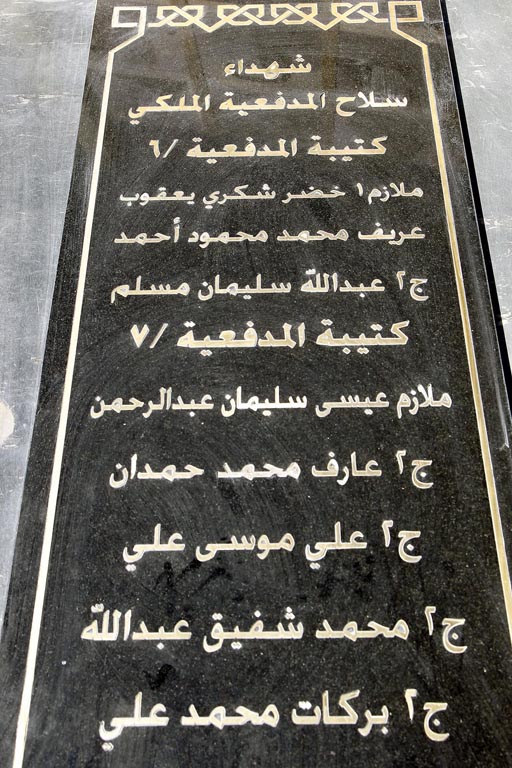 شهداء
سلاح المدفعية الملكي
كتيبة المدفعية /٦
ملازم١ خضر شكري يعقوب
عريف محمد محمود أحمد
ج٢ عبدالله سليمان مسلم
كتيبة المدفعية /٧
ملازم عيسى سليمان عبدالرحمن
ج٢ عارف محمد حمدان
ج٢ علي موسى علي
ج٢ محمد شفيق عبدالله
ج٢ بركات محمد علي